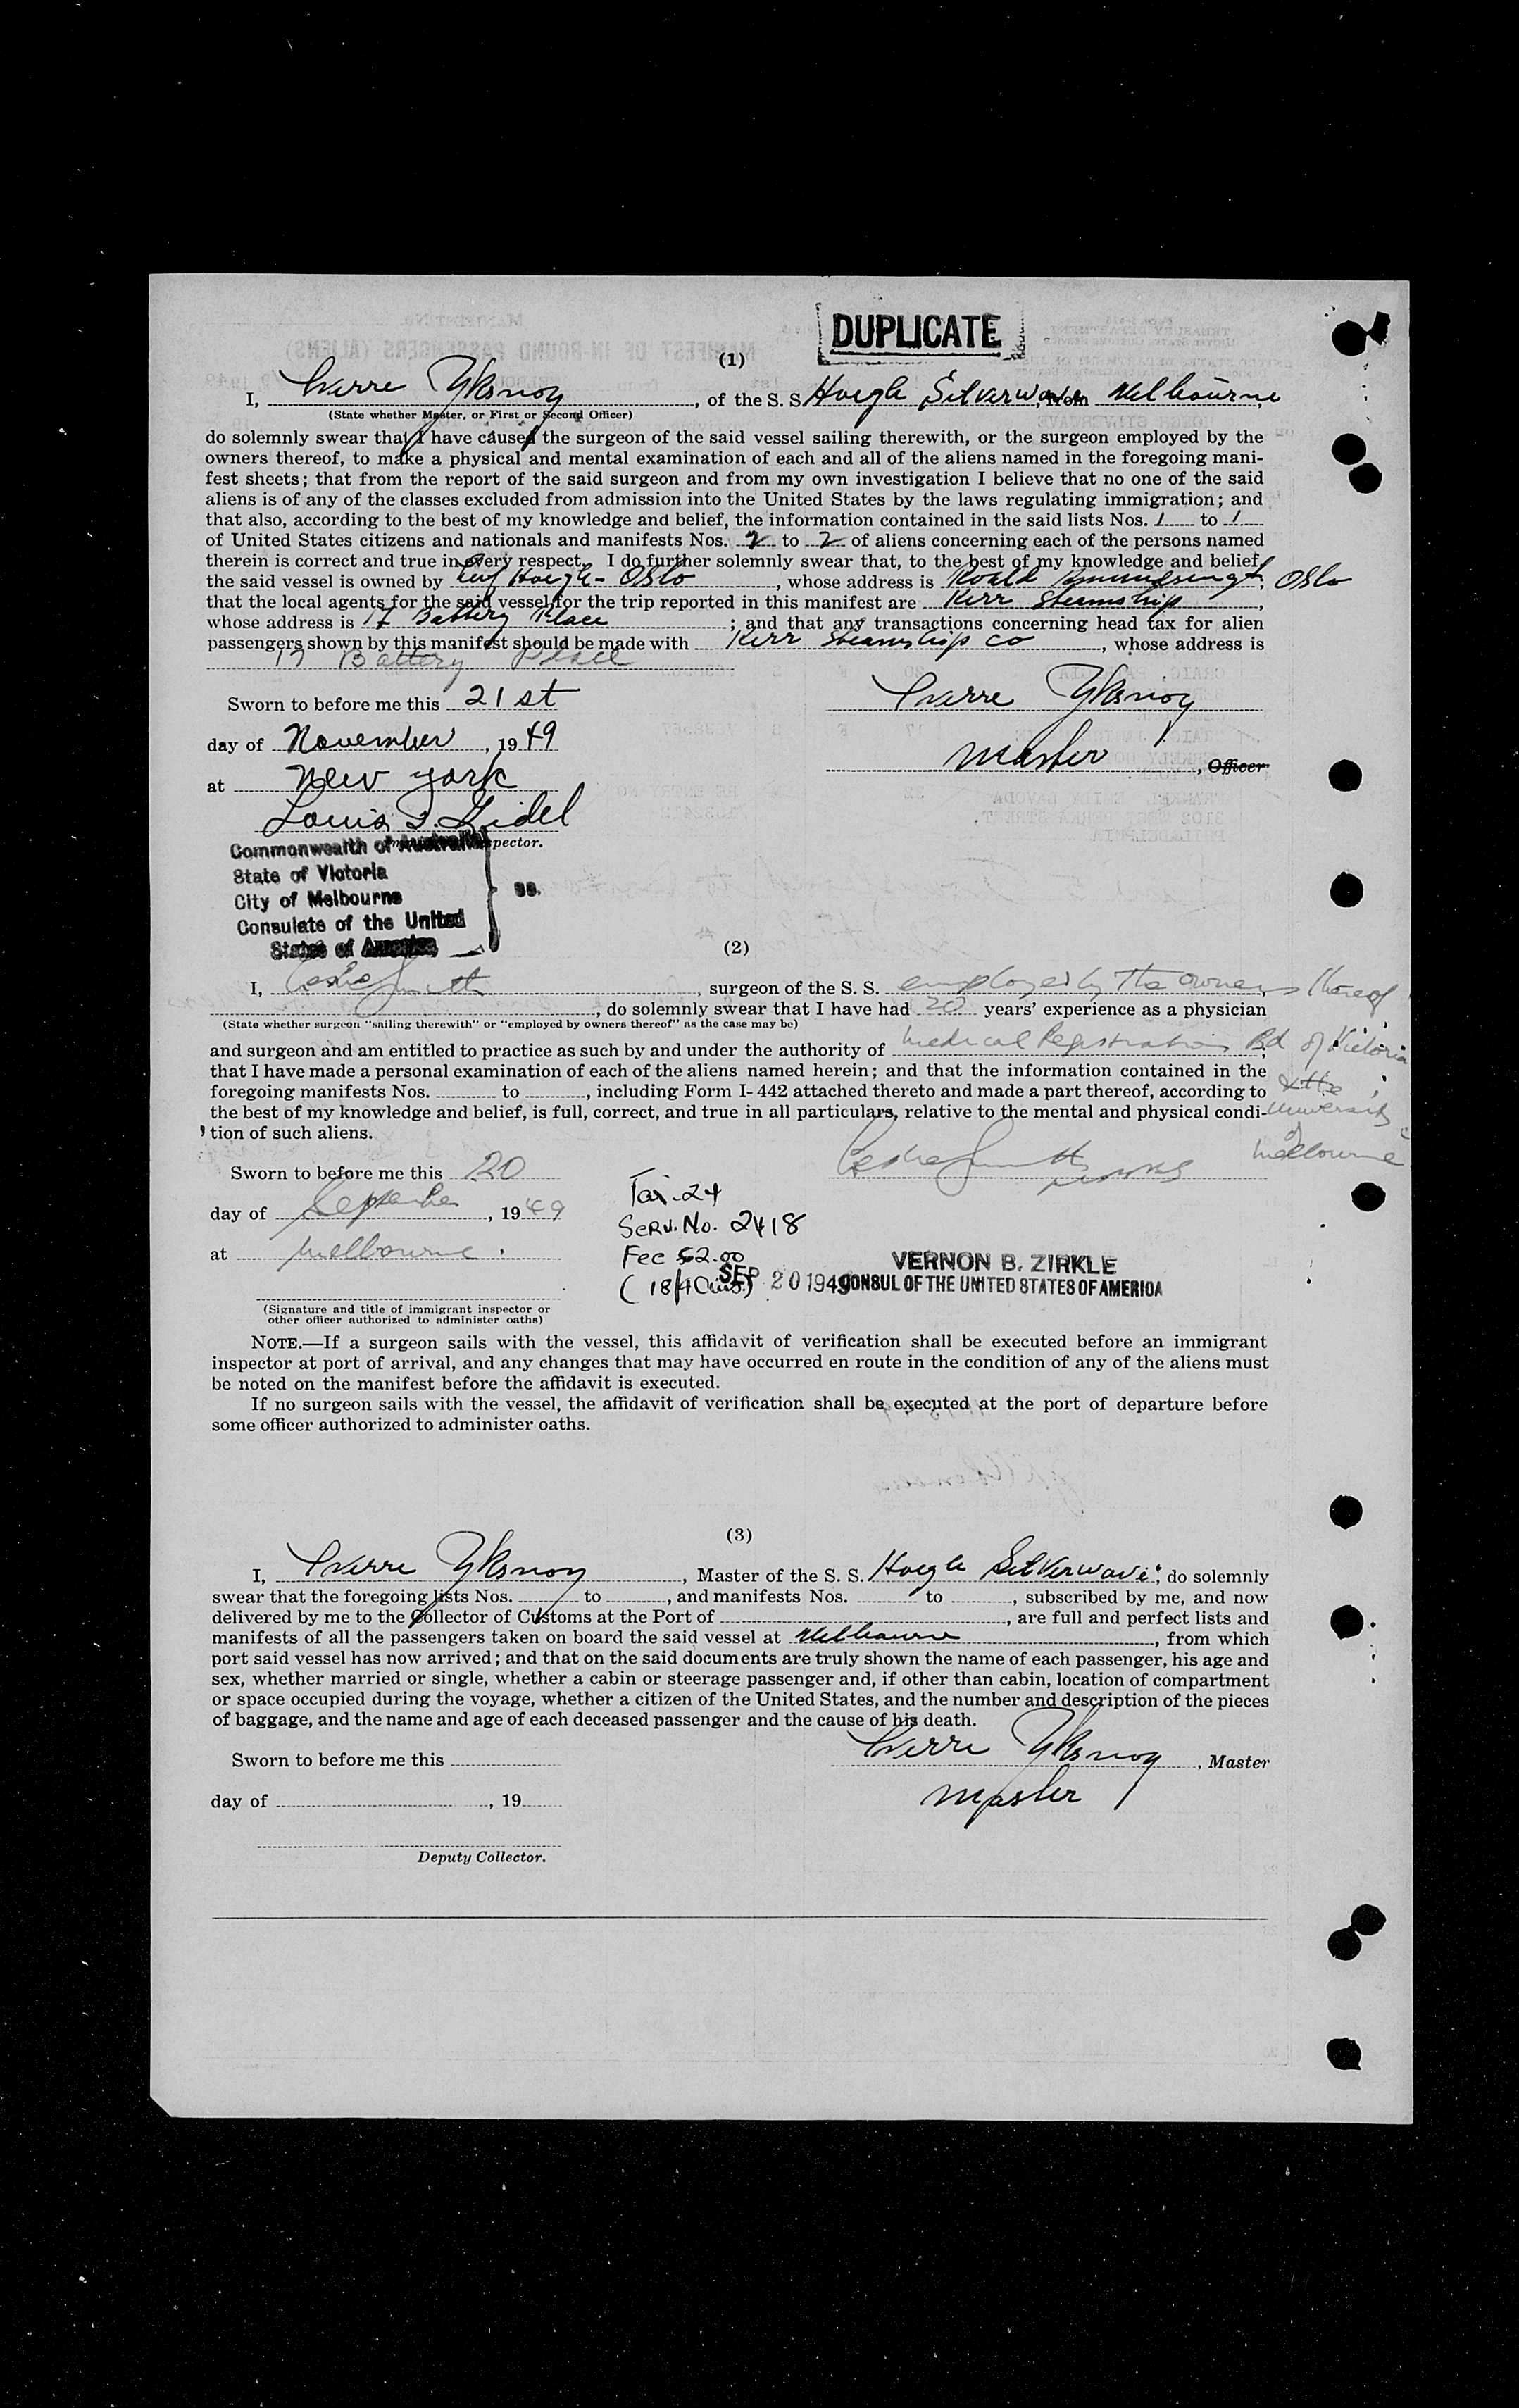 DUPLICATE
(1)
I, Sverre Yksnoy, of the S. S. Hoegh Silverwave, from Melbourne
(State whether Master, or First or Second Officer)
do solemnly swear that I have caused the surgeon of the said vessel sailing therewith, or the surgeon employed by the
owners thereof, to make a physical and mental examination of each and all of the aliens named in the foregoing mani-
fest sheets; that from the report of the said surgeon and from my own investigation I believe that no one of the said
aliens is of any of the classes excluded from admission into the United States by the laws regulating immigration; and
that also, according to the best of my knowledge and belief, the information contained in the said lists Nos. 1 to 1
of United States citizens and nationals and manifests Nos. 2 to 2 of aliens concerning each of the persons named
therein is correct and true in every respect. I do further solemnly swear that, to the best of my knowledge and belief,
the said vessel is owned by Leif Hoegh - Oslo, whose address is Roald Amundsensgt, Oslo
that the local agents for the said vessel for the trip reported in this manifest are Kerr Steamship,
whose address is 17 Battery Place; and that any transactions concerning head tax for alien
passengers shown by this manifest should be made with Kerr Steamship Co, whose address is
17 Battery Place
Sworn to before me this 21st
Sverre Yksnoy
day of November, 1949
Master, Officer
at New York
Louis J. Gidel
Inspector.
Commonwealth of Australia
State of Victoria
City of Melbourne
Consulate of the United
States of America
ss.
(2)
I, Leslie Smith, surgeon of the S. S. employed by the owners thereof
, do solemnly swear that I have had 20 years' experience as a physician
(State whether surgeon "sailing therewith" or "employed by owners thereof" as the case may be)
and surgeon and am entitled to practice as such by and under the authority of Medical Registration Bd of Victoria
that I have made a personal examination of each of the aliens named herein; and that the information contained in the & the
foregoing manifests Nos. to , including Form I-442 attached thereto and made a part thereof, according to
the best of my knowledge and belief, is full, correct, and true in all particulars, relative to the mental and physical condi- University
tion of such aliens. of
Melbourne
Sworn to before me this 20
Leslie Smith
day of September, 1949
at Melbourne.
Tar. 24
Serv. No. 2418
Fee $2.00
(18/
SEP 20 1949
VERNON B. ZIRKLE
CONSUL OF THE UNITED STATES OF AMERICA
(Signature and title of immigrant inspector or
other officer authorized to administer oaths)
NOTE.—If a surgeon sails with the vessel, this affidavit of verification shall be executed before an immigrant
inspector at port of arrival, and any changes that may have occurred en route in the condition of any of the aliens must
be noted on the manifest before the affidavit is executed.
If no surgeon sails with the vessel, the affidavit of verification shall be executed at the port of departure before
some officer authorized to administer oaths.
(3)
I, Sverre Yksnoy, Master of the S. S. Hoegh Silverwave, do solemnly
swear that the foregoing lists Nos. to , and manifests Nos. to , subscribed by me, and now
delivered by me to the Collector of Customs at the Port of , are full and perfect lists and
manifests of all the passengers taken on board the said vessel at Melbourne, from which
port said vessel has now arrived; and that on the said documents are truly shown the name of each passenger, his age and
sex, whether married or single, whether a cabin or steerage passenger and, if other than cabin, location of compartment
or space occupied during the voyage, whether a citizen of the United States, and the number and description of the pieces
of baggage, and the name and age of each deceased passenger and the cause of his death.
Sworn to before me this
Sverre Yksnoy, Master
day of , 19
Master
Deputy Collector.